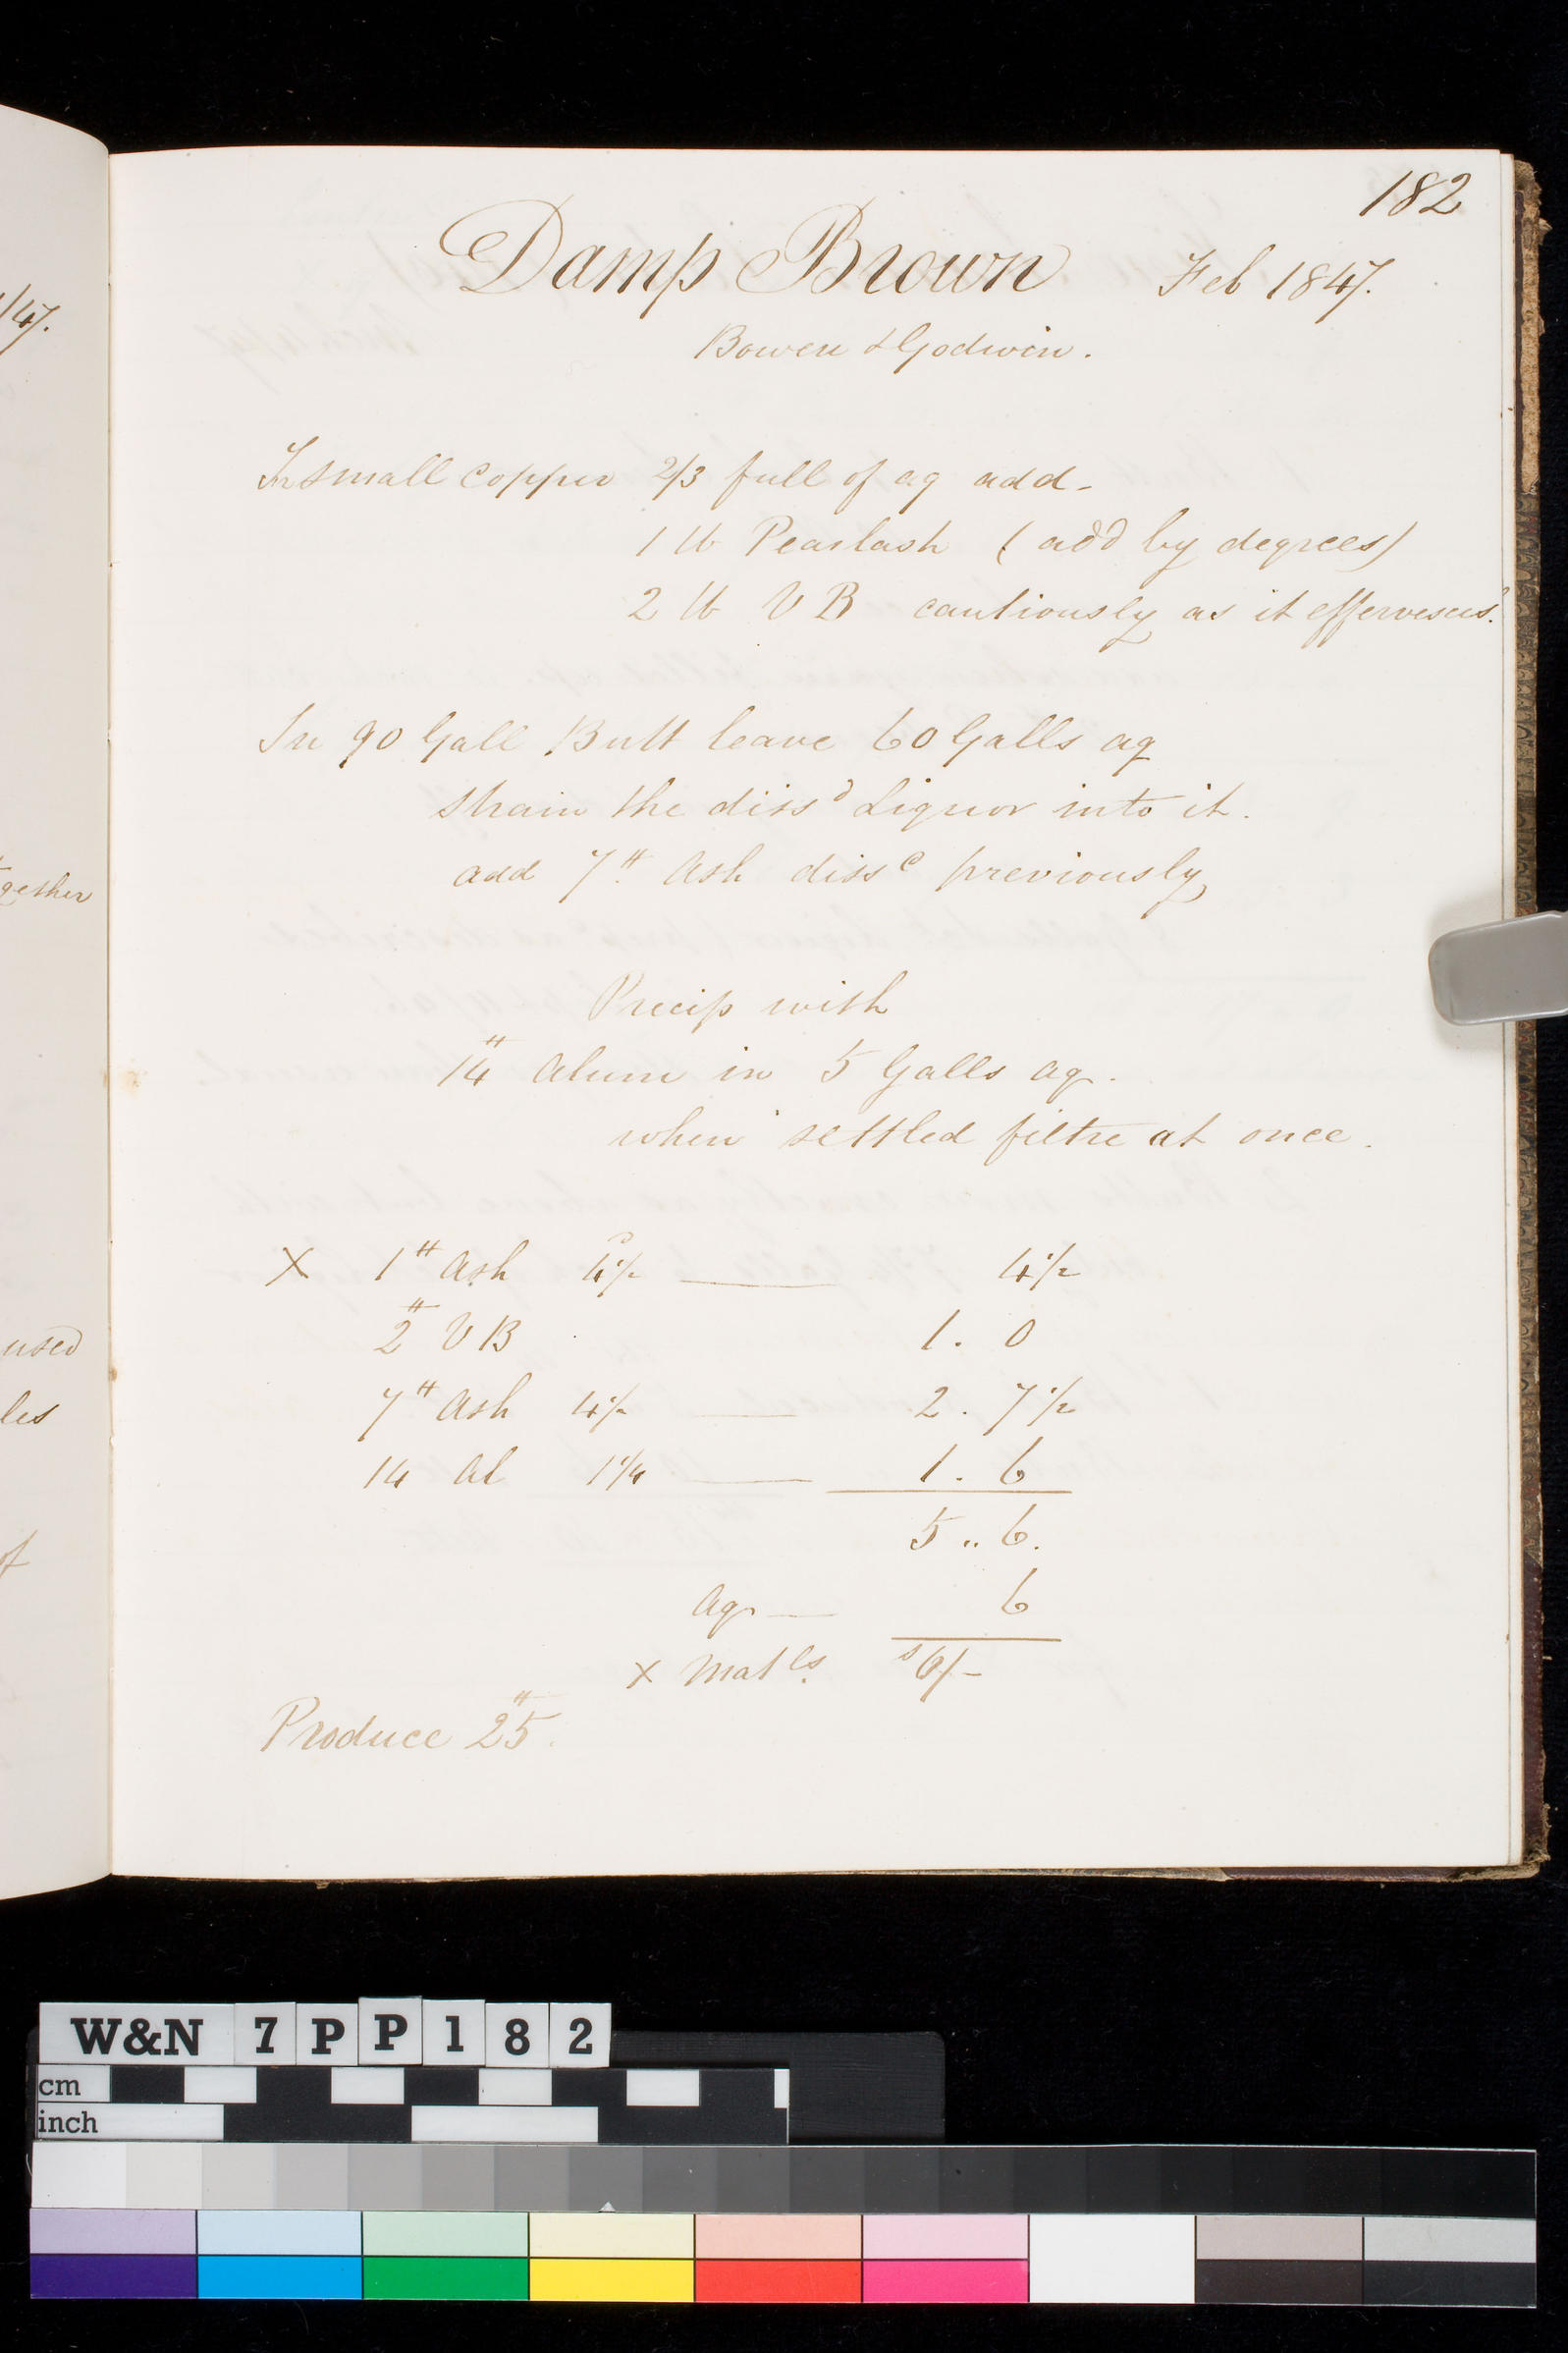 182
Damp Brown Feb 1847.
Bowen & Godwin.
In small copper 2/3 full of aq add-
1 lb Pearlash ( add by degrees)
2 lb V B cautiously as it effervesces.
In 90 Gall Butt leave 60 Galls aq
strain the dissd Liquor into it.
add 7# Ash dissd previously
Precip with
14# Alum in 5 Galls aq.
when settled filtre at once.
X 1# Ash 4½ — 4½
2# V B 1. 0
7# Ash 4½ — 2. 7½
14 Al 1¼ — 1. 6
5 .. 6.
Aq — 6
X Matls. s6/-
Produce 25#.
/47.
gether
used
les
of
W&N 7PP182
cm
inch